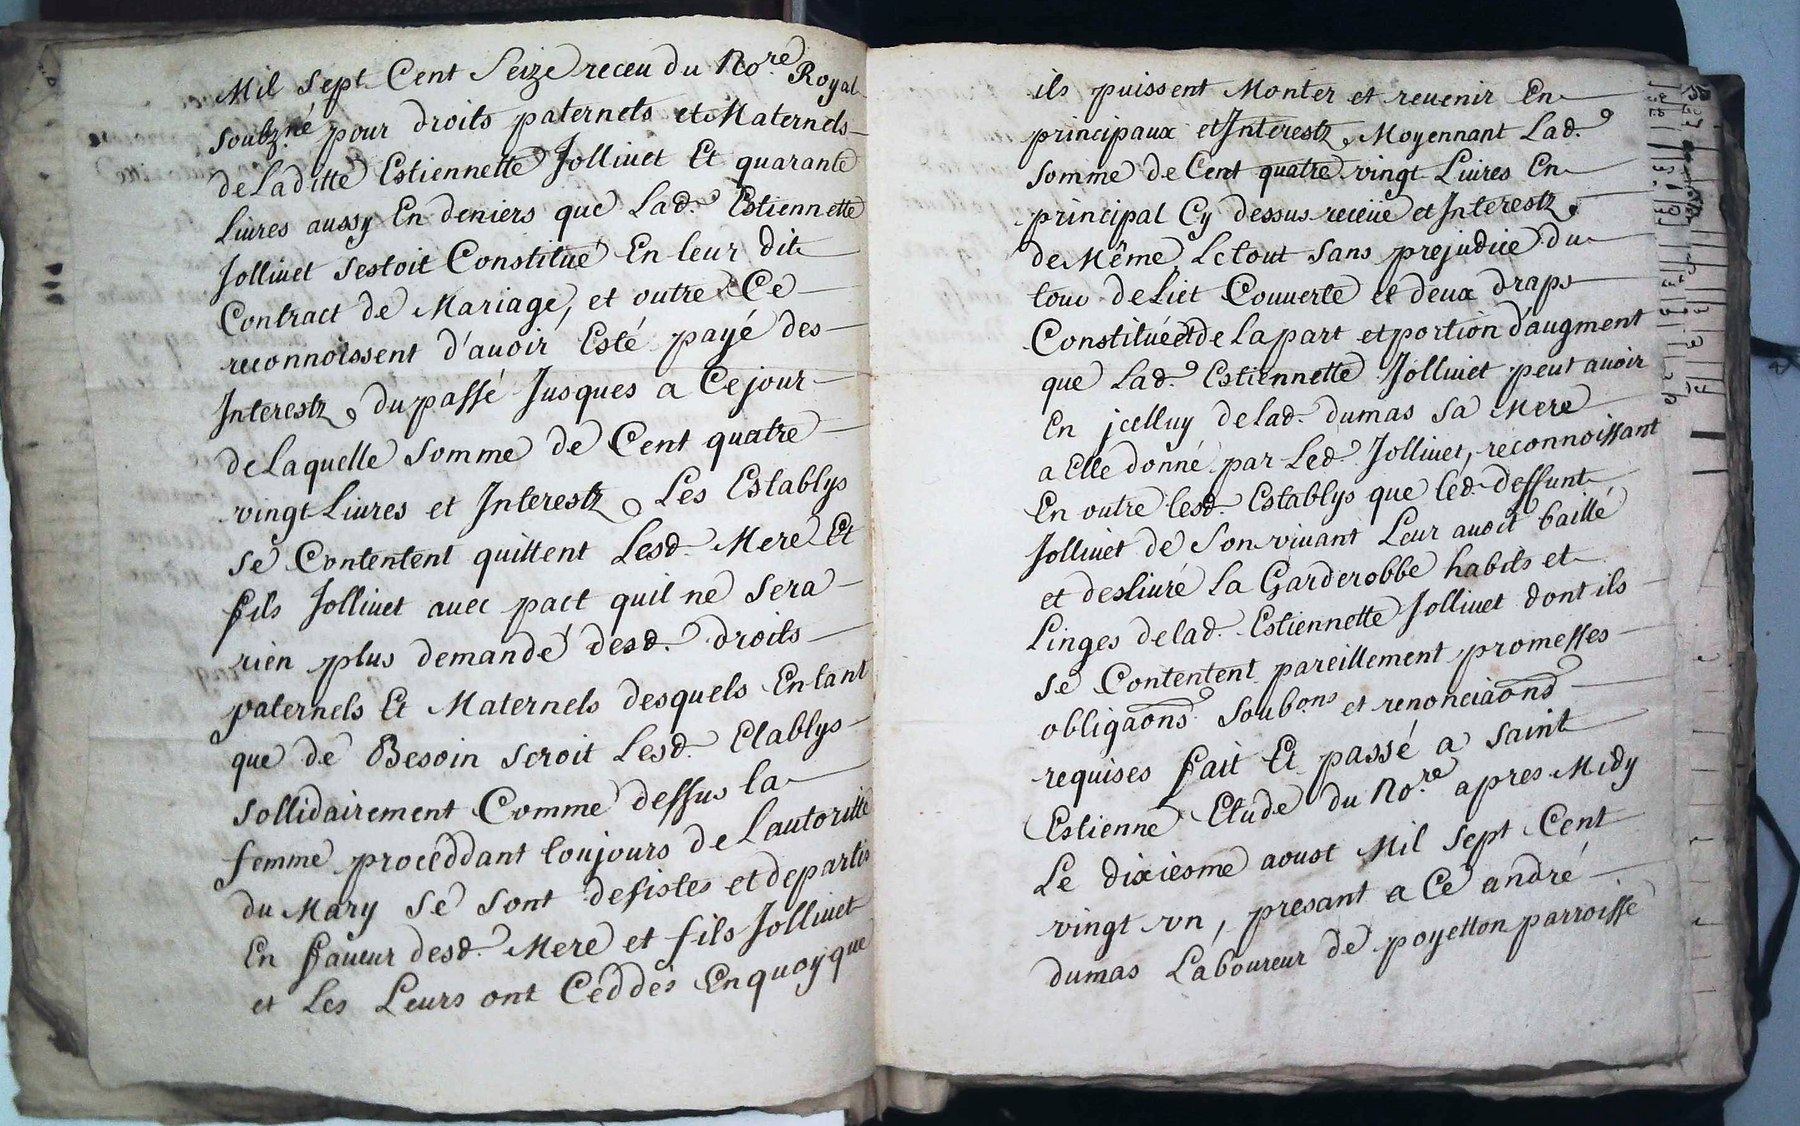 Mil sept Cent Seize receu du No.re Royal
soubz.né pour droits paternels et Maternels
de Laditte Estiennette Jollivet Et quarante
Livres aussy En deniers que Lad. Estiennette
Jollivet sestoit Constitué En leur dit
Contract de Mariage, et outre Ce
reconnoissent d'avoir Esté payé des
Interestz du passé Jusques a Ce jour
de Laquelle somme de Cent quatre
vingt Livres et Interestz Les Establys
se Contentent quittent Lesd. Mere Et
fils Jollivet avec pact quil ne sera
rien plus demandé desd. droits
paternels Et Maternels desquels En tant
que de Besoin seroit Lesd. Etablys
sollidairement Comme dessus la
femme proceddant toujours de Lautoritté
du Mary se sont desistes et departis
En faveur desd. Mere et fils Jollivet
et Les Leurs ont Céddés En quoy que
ils puissent Monter et revenir En
principaux et Interestz Moyennant Lad.
somme de Cent quatre vingt Livres En
principal Cy dessus receüe et Interestz
de Même Le tout sans prejudice du
tour de Liet Couverte et deux draps
Constituéet de La part et portion d'augment
que Lad. Estiennette Jollivet peut avoir
En jcelluy de lad. dumas sa Mere
a Elle donné par Led. Jollivet, reconnoissant
En outre lesd. Establys que led. deffunt
Jollivet de son vivant Leur avoit baillé
et deslivré La Garderobbe habits et
Linges de lad. Estiennette Jollivet dont ils
se Contentent pareillement promesses
obligaons soub.ons et renonciaons
requises fait Et passé a saint
Estienne Etude du No.re apres Midy
Le dixiesme aoust Mil sept Cent
vingt vn, presant a Ce andré
dumas Laboureur de poyetton parroisse